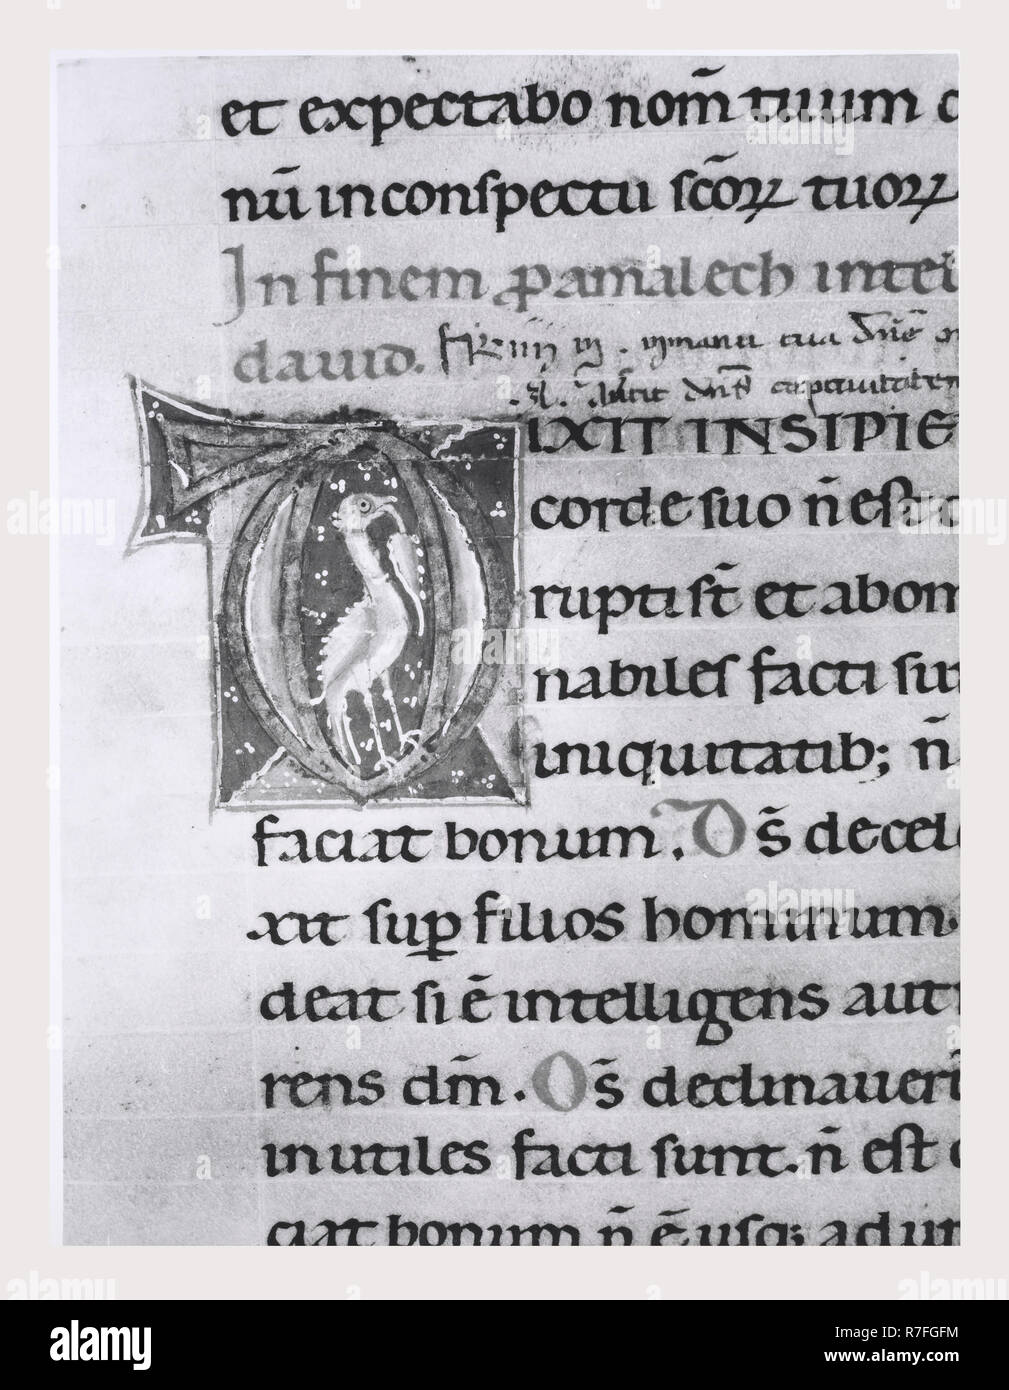 et expectabo nom̄ tuum
nū in conſpectu ſc̄oꝝ tuoꝝ
In finem ꝓ amalech intel
dauid.
D IXIT INSIPIE
corde ſuo n̄ eſt
rupti ſt̄ et abom
nabiles facti ſun
iniquitatib; n̄
faciat bonum. Ds̄ de cel
xit ſuꝑ filios hominum.
deat ſi ē intelligens aut
rens dm̄. Os̄ declinauer̄
inutiles facti ſunt. n̄ eſt
ciat bonum n̄ ē uſq; ad un
alamy
Image ID: R7FGFM
www.alamy.com